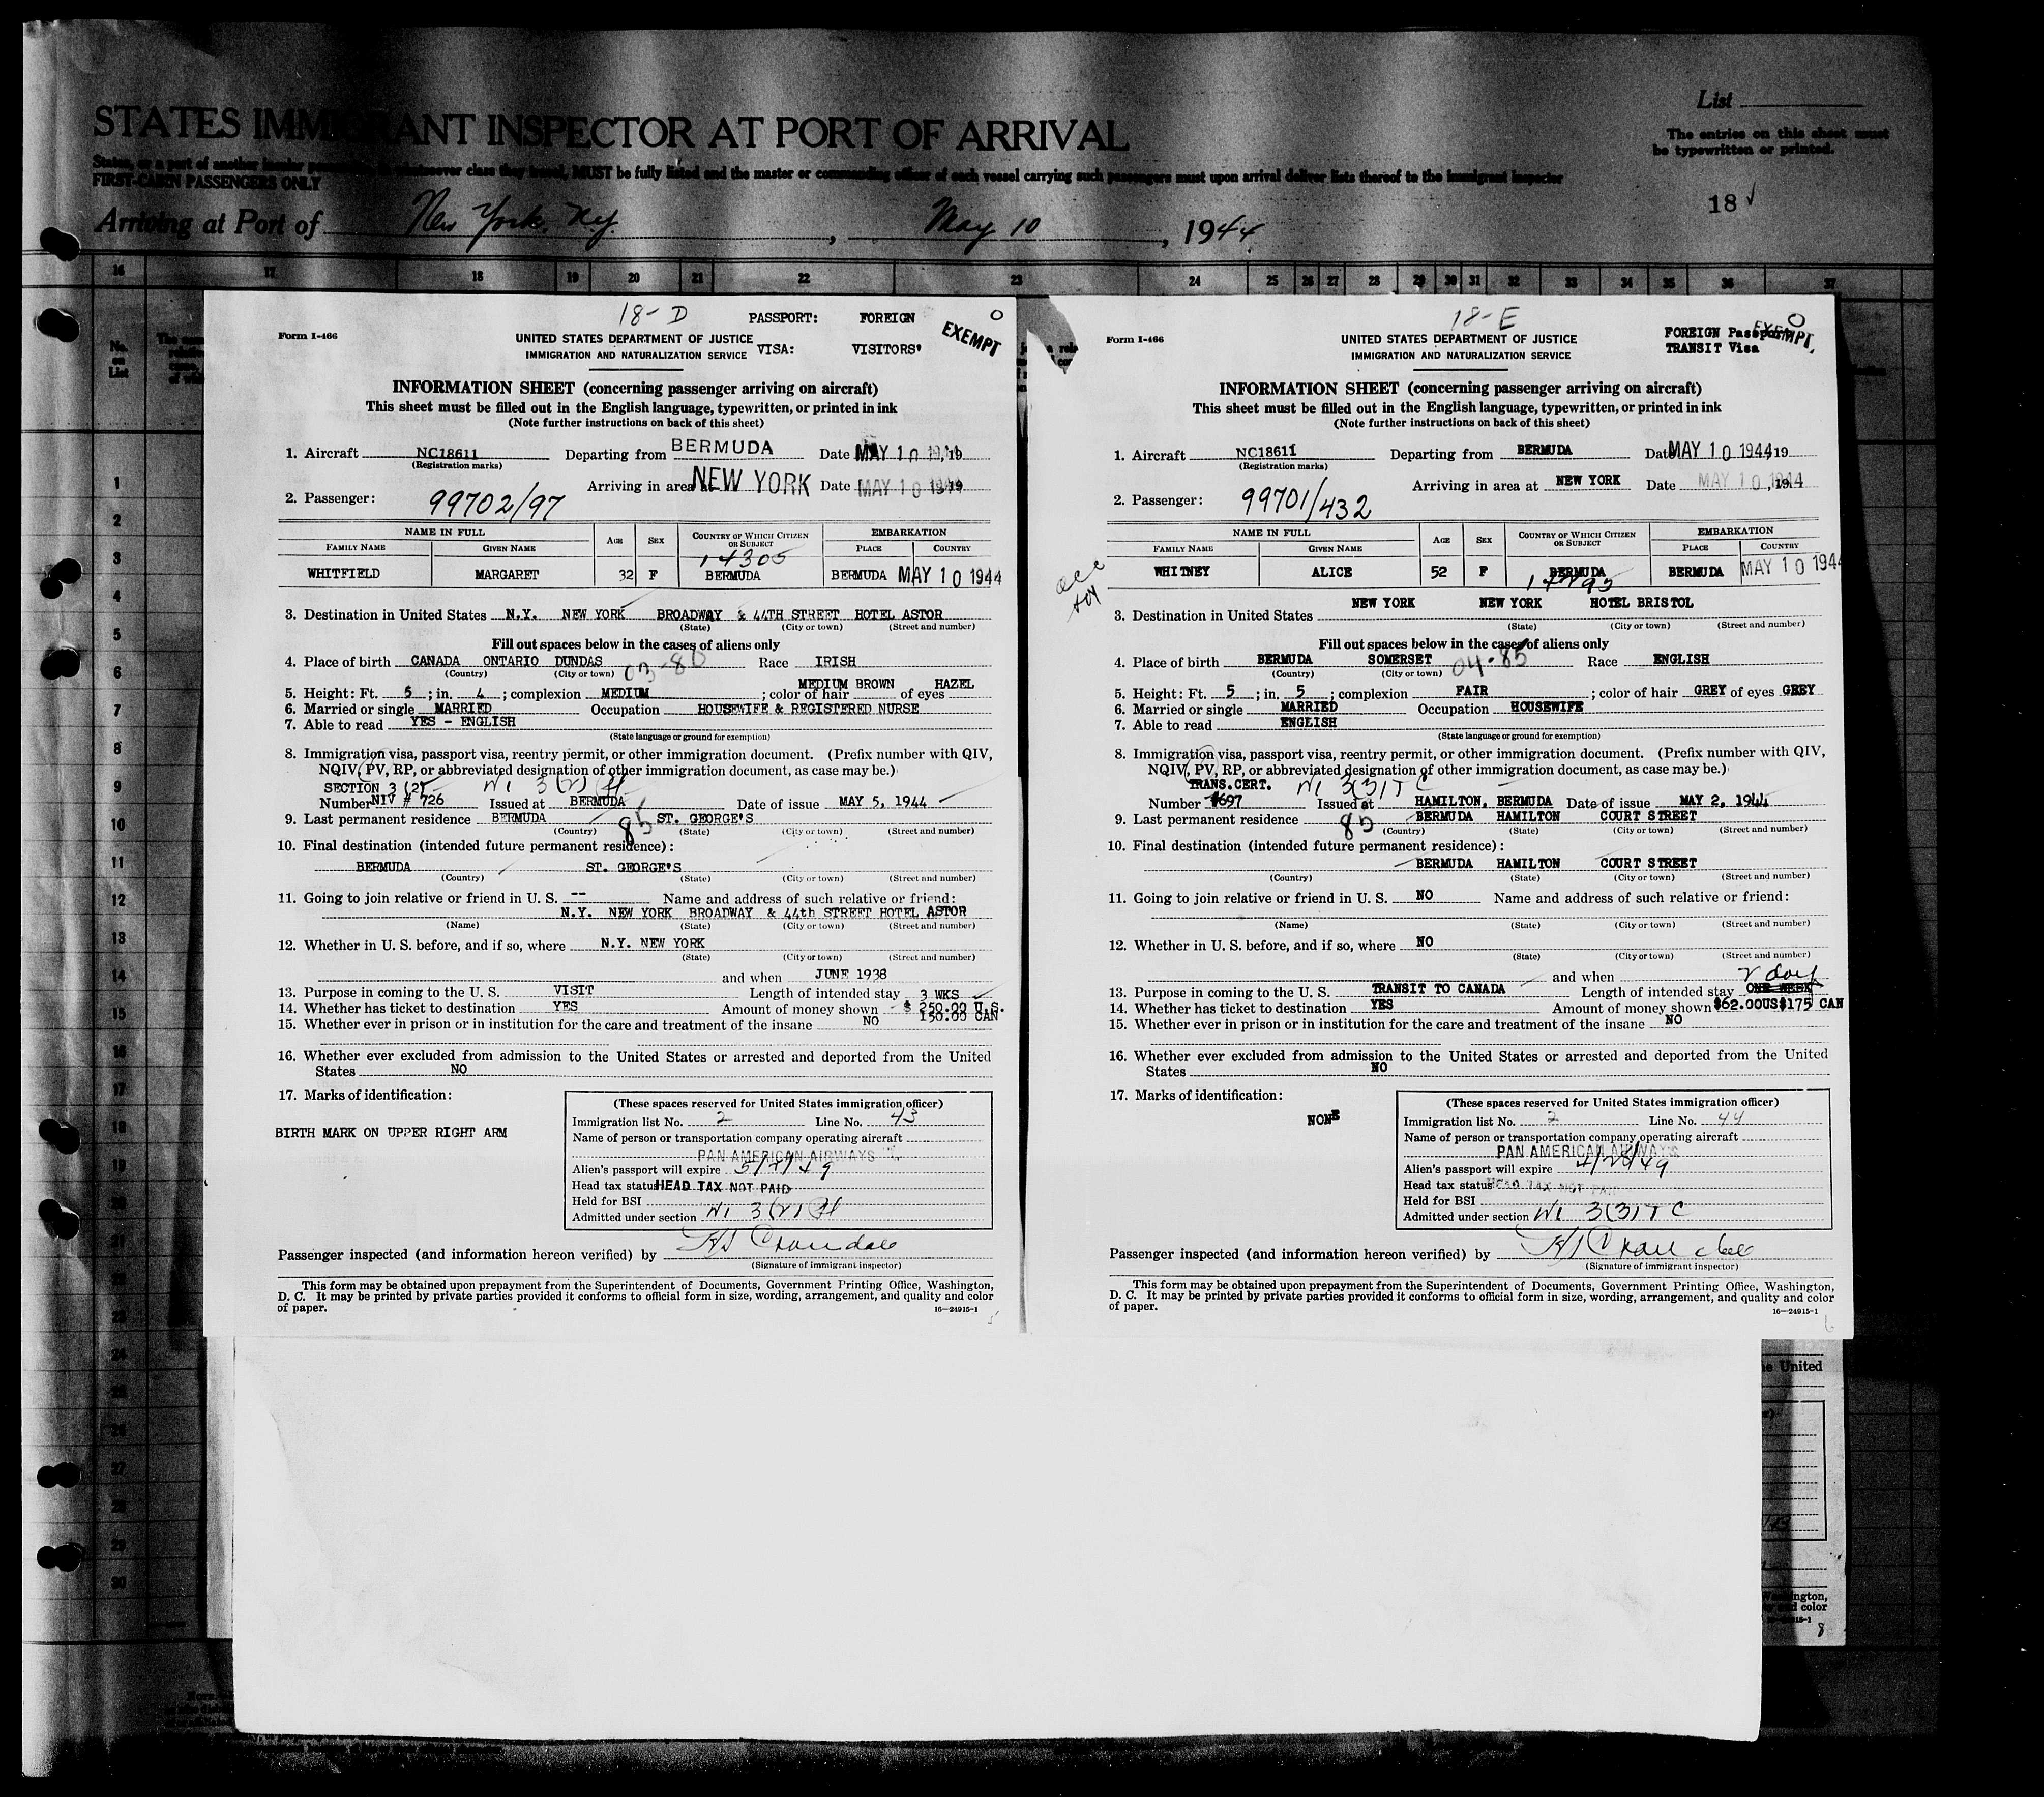 List
STATES IMMIGRANT INSPECTOR AT PORT OF ARRIVAL
The entries on this sheet must
be typewritten or printed.
States, or a part of another insular possession, in whatsoever class they travel, MUST be fully listed and the master or commanding officer of each vessel carrying such passengers must upon arrival deliver lists thereof to the immigrant inspector
FIRST-CABIN PASSENGERS ONLY
18
Arriving at Port of New York, N.Y. , May 10 , 1944
16 17 18 19 20 21 22 23 24 25 26 27 28 29 30 31 32 33 34 35 36 37
No. on List
1
2
3
4
5
6
7
8
9
10
11
12
13
14
15
16
17
18
19
20
21
22
23
24
25
26
27
28
29
30
18-D PASSPORT: FOREIGN O
Form I-466
UNITED STATES DEPARTMENT OF JUSTICE
IMMIGRATION AND NATURALIZATION SERVICE
VISA: VISITORS' EXEMPT
INFORMATION SHEET (concerning passenger arriving on aircraft)
This sheet must be filled out in the English language, typewritten, or printed in ink
(Note further instructions on back of this sheet)
1. Aircraft NC18611 Departing from BERMUDA Date MAY 10 1944, 19
(Registration marks)
Arriving in area at NEW YORK Date MAY 10 1944, 19
2. Passenger: 99702/97
NAME IN FULL AGE SEX COUNTRY OF WHICH CITIZEN OR SUBJECT EMBARKATION
FAMILY NAME GIVEN NAME PLACE COUNTRY
14305
WHITFIELD MARGARET 32 F BERMUDA BERMUDA MAY 10 1944
3. Destination in United States N.Y. NEW YORK BROADWAY & 44TH STREET HOTEL ASTOR
(State) (City or town) (Street and number)
Fill out spaces below in the cases of aliens only
4. Place of birth CANADA ONTARIO DUNDAS 03-80 Race IRISH
(Country) (City or town)
MEDIUM BROWN HAZEL
5. Height: Ft. 5 ; in. 4 ; complexion MEDIUM ; color of hair of eyes
6. Married or single MARRIED Occupation HOUSEWIFE & REGISTERED NURSE
7. Able to read YES - ENGLISH
(State language or ground for exemption)
8. Immigration visa, passport visa, reentry permit, or other immigration document. (Prefix number with QIV,
NQIV, PV, RP, or abbreviated designation of other immigration document, as case may be.)
SECTION 3 (2)
Number NIV # 726 Issued at BERMUDA Date of issue MAY 5, 1944
9. Last permanent residence BERMUDA 85 ST. GEORGE'S
(Country) (State) (City or town) (Street and number)
10. Final destination (intended future permanent residence):
BERMUDA ST. GEORGE'S
(Country) (State) (City or town) (Street and number)
11. Going to join relative or friend in U. S. -- Name and address of such relative or friend:
N.Y. NEW YORK BROADWAY & 44th STREET HOTEL ASTOR
(Name) (State) (City or town) (Street and number)
12. Whether in U. S. before, and if so, where N.Y. NEW YORK
(State) (City or town) (Street and number)
and when JUNE 1938
13. Purpose in coming to the U. S. VISIT Length of intended stay 3 WKS
14. Whether has ticket to destination YES Amount of money shown $ 250.00 U.S.
150.00 CAN
15. Whether ever in prison or in institution for the care and treatment of the insane NO
16. Whether ever excluded from admission to the United States or arrested and deported from the United
States NO
17. Marks of identification:
BIRTH MARK ON UPPER RIGHT ARM
(These spaces reserved for United States immigration officer)
Immigration list No. 2 Line No. 43
Name of person or transportation company operating aircraft
PAN AMERICAN AIRWAYS
Alien's passport will expire 5/2/49
Head tax status HEAD TAX NOT PAID
Held for BSI
Admitted under section
Passenger inspected (and information hereon verified) by HS Crandall
(Signature of immigrant inspector)
This form may be obtained upon prepayment from the Superintendent of Documents, Government Printing Office, Washington,
D. C. It may be printed by private parties provided it conforms to official form in size, wording, arrangement, and quality and color
of paper.
16—24915-1
5
18-E
Form I-466
UNITED STATES DEPARTMENT OF JUSTICE
IMMIGRATION AND NATURALIZATION SERVICE
FOREIGN Passport
TRANSIT Visa
EXEMPT
O
INFORMATION SHEET (concerning passenger arriving on aircraft)
This sheet must be filled out in the English language, typewritten, or printed in ink
(Note further instructions on back of this sheet)
1. Aircraft NC18611 Departing from BERMUDA Date MAY 10 1944, 19
(Registration marks)
Arriving in area at NEW YORK Date MAY 10 1944, 19
2. Passenger: 99701/432
NAME IN FULL AGE SEX COUNTRY OF WHICH CITIZEN OR SUBJECT EMBARKATION
FAMILY NAME GIVEN NAME PLACE COUNTRY
WHITNEY ALICE 52 F BERMUDA BERMUDA MAY 10 1944
NEW YORK NEW YORK HOTEL BRISTOL
3. Destination in United States
(State) (City or town) (Street and number)
Fill out spaces below in the cases of aliens only
4. Place of birth BERMUDA SOMERSET 04-85 Race ENGLISH
(Country) (City or town)
5. Height: Ft. 5 ; in. 5 ; complexion FAIR ; color of hair GREY of eyes GREY
6. Married or single MARRIED Occupation HOUSEWIFE
7. Able to read ENGLISH
(State language or ground for exemption)
8. Immigration visa, passport visa, reentry permit, or other immigration document. (Prefix number with QIV,
NQIV, PV, RP, or abbreviated designation of other immigration document, as case may be.)
TRANS.CERT. 3(3) TC
Number #697 Issued at HAMILTON, BERMUDA Date of issue MAY 2, 1944
9. Last permanent residence 85 BERMUDA HAMILTON COURT STREET
(Country) (State) (City or town) (Street and number)
10. Final destination (intended future permanent residence):
BERMUDA HAMILTON COURT STREET
(Country) (State) (City or town) (Street and number)
11. Going to join relative or friend in U. S. NO Name and address of such relative or friend:
(Name) (State) (City or town) (Street and number)
12. Whether in U. S. before, and if so, where NO
(State) (City or town) (Street and number)
and when
13. Purpose in coming to the U. S. TRANSIT TO CANADA Length of intended stay ONE WEEK
14. Whether has ticket to destination YES Amount of money shown $62.00US$175 CAN
15. Whether ever in prison or in institution for the care and treatment of the insane NO
16. Whether ever excluded from admission to the United States or arrested and deported from the United
States NO
17. Marks of identification:
NONE
(These spaces reserved for United States immigration officer)
Immigration list No. 2 Line No. 44
Name of person or transportation company operating aircraft
PAN AMERICAN AIRWAYS
Alien's passport will expire 4/28/49
Head tax status HEAD TAX NOT PAID
Held for BSI
Admitted under section 3(3) TC
Passenger inspected (and information hereon verified) by HS Crandall
(Signature of immigrant inspector)
This form may be obtained upon prepayment from the Superintendent of Documents, Government Printing Office, Washington,
D. C. It may be printed by private parties provided it conforms to official form in size, wording, arrangement, and quality and color
of paper.
16—24915-1
6
United
ington,
color
8